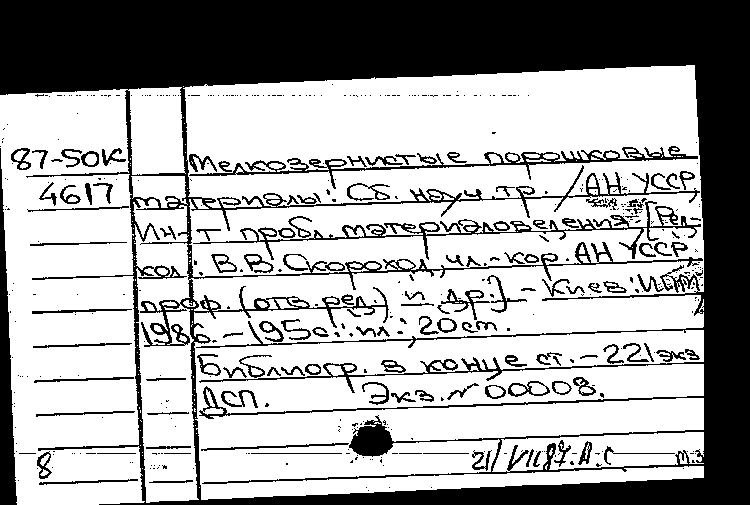 87-50К Мелкозернистые порошковые
4617 материалы: Сб. науч. тр. / АН УССР,
Ин-т пробл. материаловедения; [Ред-
кол.: В.В. Скороход, чл.-кор. АН УССР,
проф. (отв. ред.) и др.]. - Киев: ИПМ,
1986. - 195с.: ил.; 20 см.
Библиогр. в конце ст. - 221 экз
ДСП. Экз. № 00008.
8 21/VII 87. А.С. М.З